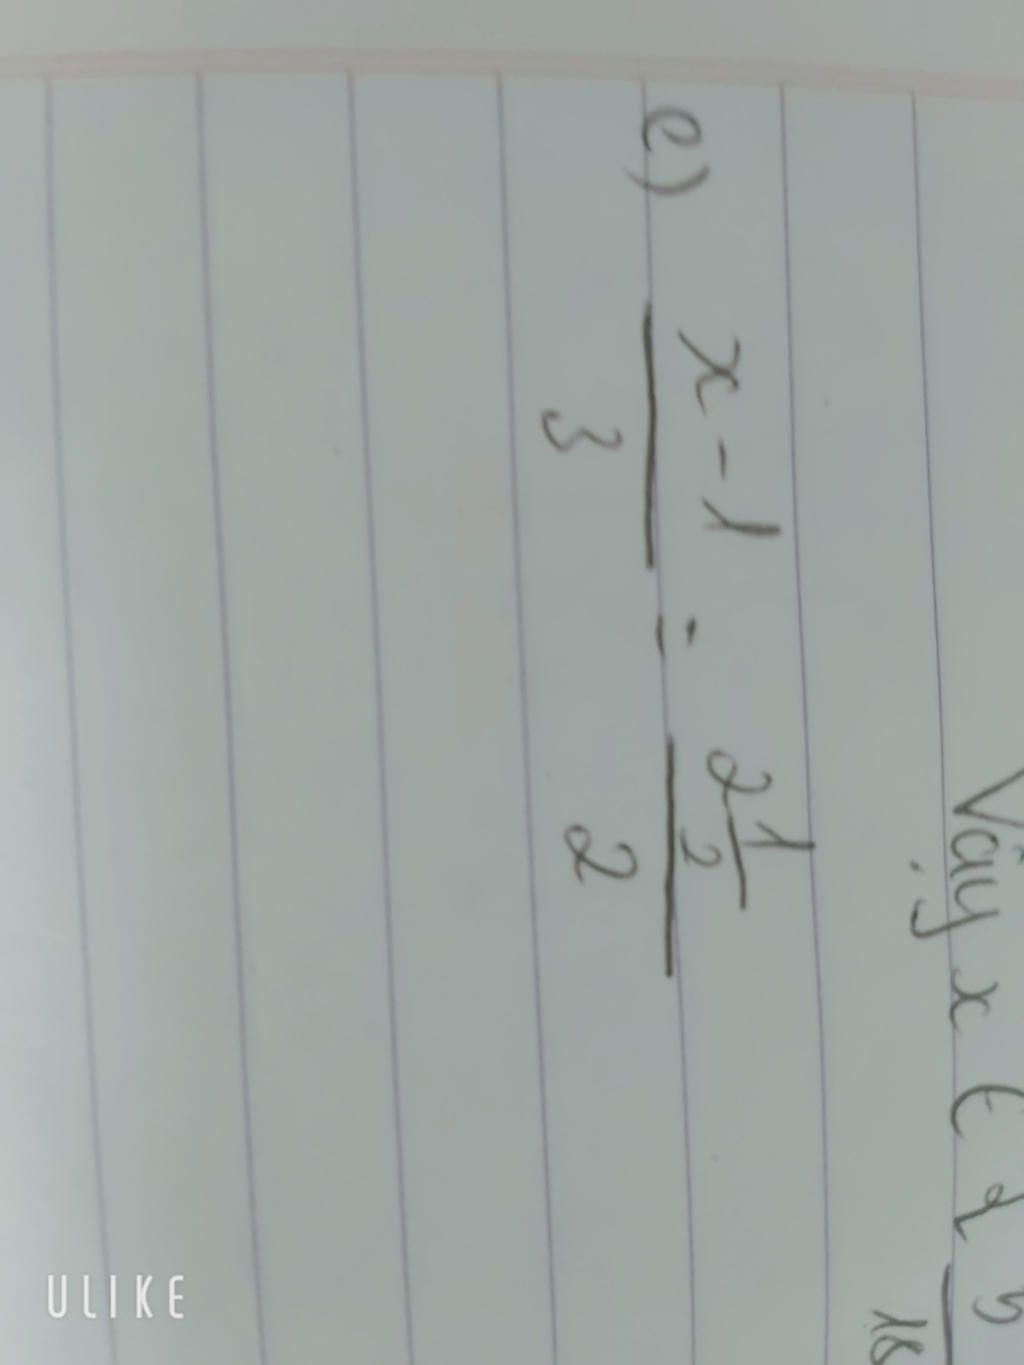 Vậy x ∈ {
e) \frac{x - 1}{3} = \frac{2\frac{1}{2}}{2}
ULIKE